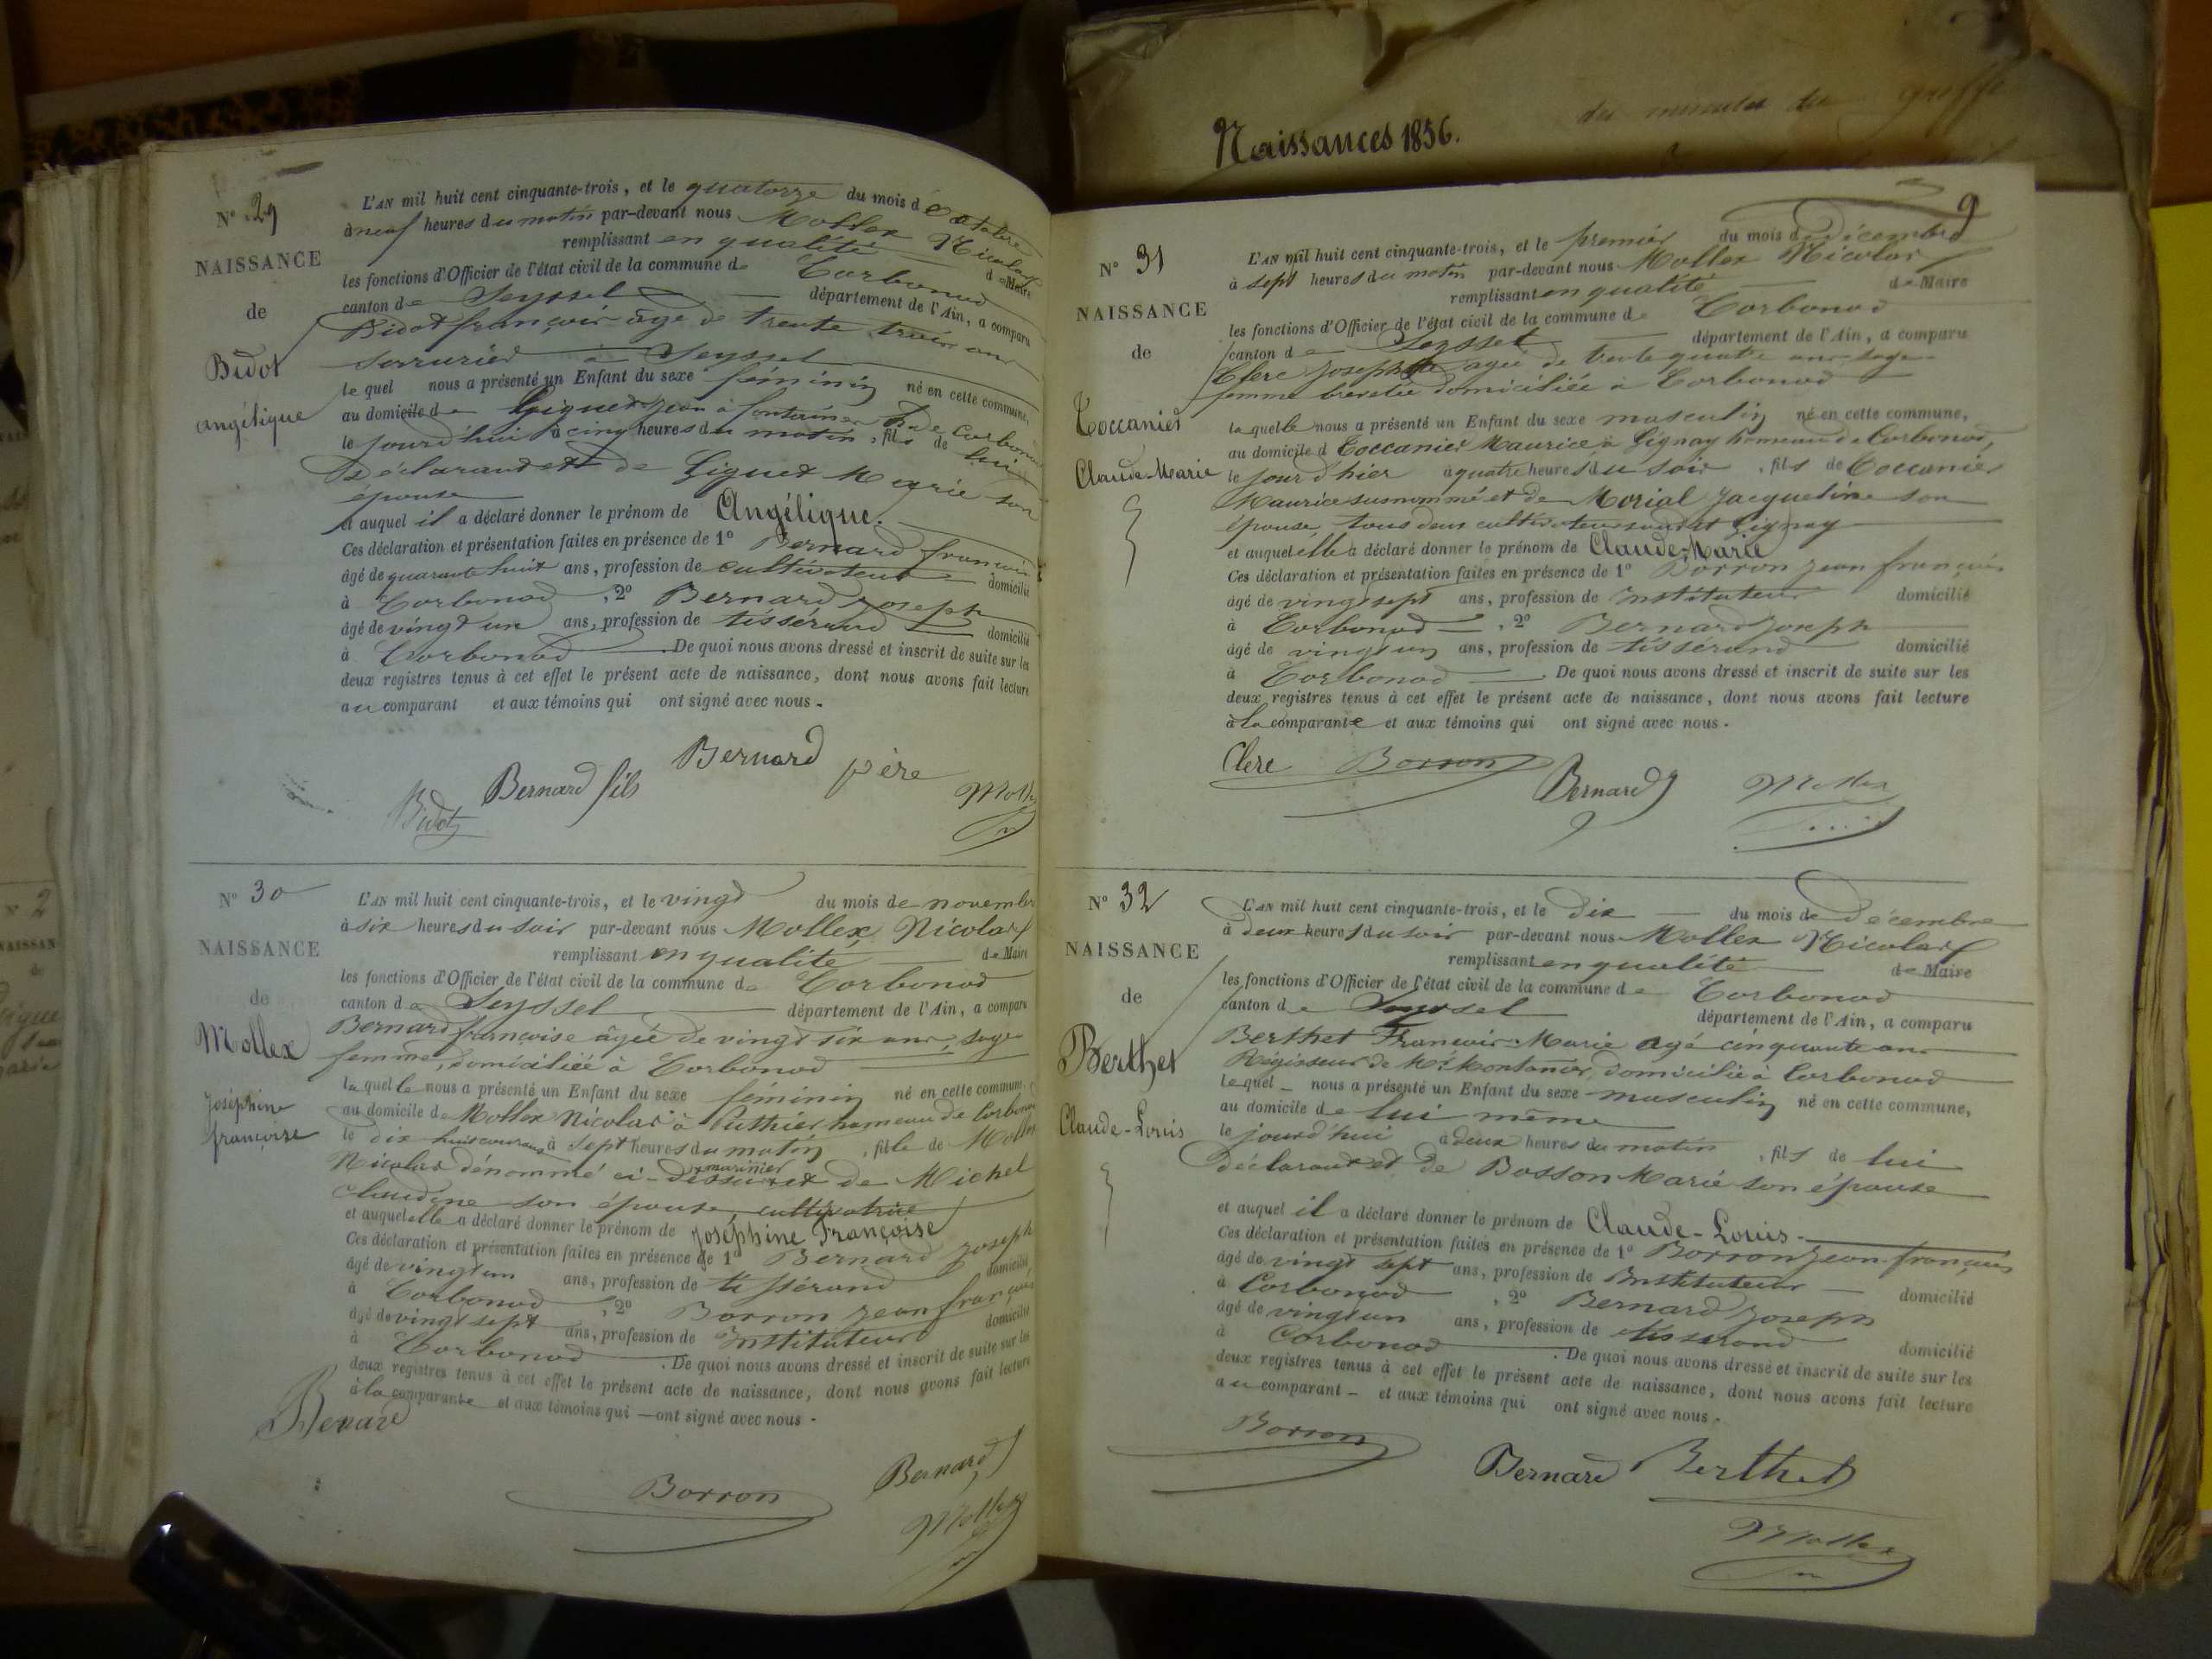 Naissances 1856.
N° 29
NAISSANCE
de
Bidot
angélique
L'AN mil huit cent cinquante-trois, et le quatorze du mois d'Octobre
à neuf heures du matin par-devant nous Mollex Nicolas
remplissant en qualité de Maire
les fonctions d'Officier de l'état civil de la commune de Corbonod
canton de Seyssel département de l'Ain, a comparu
Bidot françois âgé de trente trois ans
serrurier à Seyssel
le quel nous a présenté un Enfant du sexe féminin né en cette commune,
au domicile de Giguet Jean à fontaine de Corbonod
le jourd'hui à cinq heures du matin, fils de lui
Déclarant et de Giguet Marie son
épouse
et auquel il a déclaré donner le prénom de Angélique.
Ces déclaration et présentation faites en présence de 1° Bernard françois
âgé de quarante huit ans, profession de cultivateur domicilié
à Corbonod, 2° Bernard Joseph
âgé de vingt un ans, profession de tissérand domicilié
à Corbonod. De quoi nous avons dressé et inscrit de suite sur les
deux registres tenus à cet effet le présent acte de naissance, dont nous avons fait lecture
au comparant et aux témoins qui ont signé avec nous.
Bidot Bernard fils Bernard père Mollex
N° 30
NAISSANCE
de
Mollex
Joséphine
françoise
L'AN mil huit cent cinquante-trois, et le vingt du mois de novembre
à six heures du soir par-devant nous Mollex Nicolas
remplissant en qualité de Maire
les fonctions d'Officier de l'état civil de la commune de Corbonod
canton de Seyssel département de l'Ain, a comparu
Bernard françoise âgée de vingt six ans, sage
femme, domiciliée à Corbonod
la quelle nous a présenté un Enfant du sexe féminin né en cette commune,
au domicile de Mollex Nicolas à Puthier hameau de Corbonod
le dix huit courant à sept heures du matin, fille de Mollex
marinier
Nicolas dénommé ci-dessus et de Michel
Claudine son épouse, cultivatrice
et auquel elle a déclaré donner le prénom de Joséphine Françoise
Ces déclaration et présentation faites en présence de 1° Bernard Joseph
âgé de vingt un ans, profession de tissérand domicilié
à Corbonod, 2° Borron Jean françois
âgé de vingt sept ans, profession de Instituteur domicilié
à Corbonod. De quoi nous avons dressé et inscrit de suite sur les
deux registres tenus à cet effet le présent acte de naissance, dont nous avons fait lecture
à la comparante et aux témoins qui — ont signé avec nous.
Benard
Borron Bernard
Mollex
9
N° 31
NAISSANCE
de
Coccanier
Claude-Marie
L'AN mil huit cent cinquante-trois, et le premier du mois de Décembre
à sept heures du matin par-devant nous Mollex Nicolas
remplissant en qualité de Maire
les fonctions d'Officier de l'état civil de la commune de Corbonod
canton de Seyssel département de l'Ain, a comparu
Clerc Josephte agée de trente quatre ans sage
femme brevetée domiciliée à Corbonod
la quelle nous a présenté un Enfant du sexe masculin né en cette commune,
au domicile d Coccanier Maurice à Gignay hameau de Corbonod,
le jour d'hier à quatre heures du soir, fils de Coccanier
Maurice susnommé et de Morial Jacqueline son
épouse, tous deux cultivateurs audit Gignay
et auquel elle a déclaré donner le prénom de Claude-Marie
Ces déclaration et présentation faites en présence de 1° Borron Jean françois
âgé de vingt sept ans, profession de Instituteur domicilié
à Corbonod, 2° Bernard Joseph
âgé de vingt un ans, profession de tissérand domicilié
à Corbonod. De quoi nous avons dressé et inscrit de suite sur les
deux registres tenus à cet effet le présent acte de naissance, dont nous avons fait lecture
à la comparante et aux témoins qui ont signé avec nous.
Clerc Borron Bernard Mollex
N° 32
NAISSANCE
de
Berthet
Claude-Louis
L'AN mil huit cent cinquante-trois, et le dix du mois de Décembre
à deux heures du soir par-devant nous Mollex Nicolas
remplissant en qualité de Maire
les fonctions d'Officier de l'état civil de la commune de Corbonod
canton de Seyssel département de l'Ain, a comparu
Berthet François Marie agé cinquante ans
Régisseur de Mr. Montanier, domicilié à Corbonod
le quel nous a présenté un Enfant du sexe masculin né en cette commune,
au domicile de lui même
le jourd'hui à deux heures du matin, fils de lui
déclarant et de Bosson Marie son épouse
et auquel il a déclaré donner le prénom de Claude-Louis.
Ces déclaration et présentation faites en présence de 1° Borron Jean-françois
âgé de vingt sept ans, profession de Instituteur domicilié
à Corbonod, 2° Bernard Joseph
âgé de vingt un ans, profession de tisserand domicilié
à Corbonod. De quoi nous avons dressé et inscrit de suite sur les
deux registres tenus à cet effet le présent acte de naissance, dont nous avons fait lecture
au comparant et aux témoins qui ont signé avec nous.
Borron Bernard Berthet
Mollex